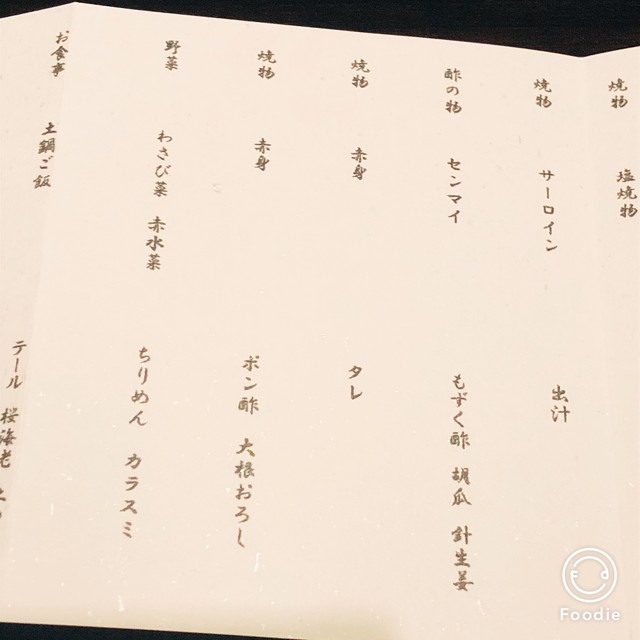 焼物 塩焼物
焼物 サーロイン 出汁
酢の物 センマイ もずく酢 胡瓜 針生姜
焼物 赤身 タレ
焼物 赤身 ポン酢 大根おろし
野菜 わさび菜 赤水菜 ちりめん カラスミ
お食事 土鍋ご飯 テール 桜海老
Foodie